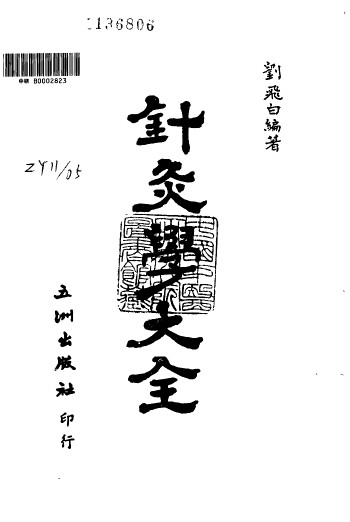 1136806
中研 B0002823
劉飛白編著
針灸學大全
ZY11/05
五洲出版社印行